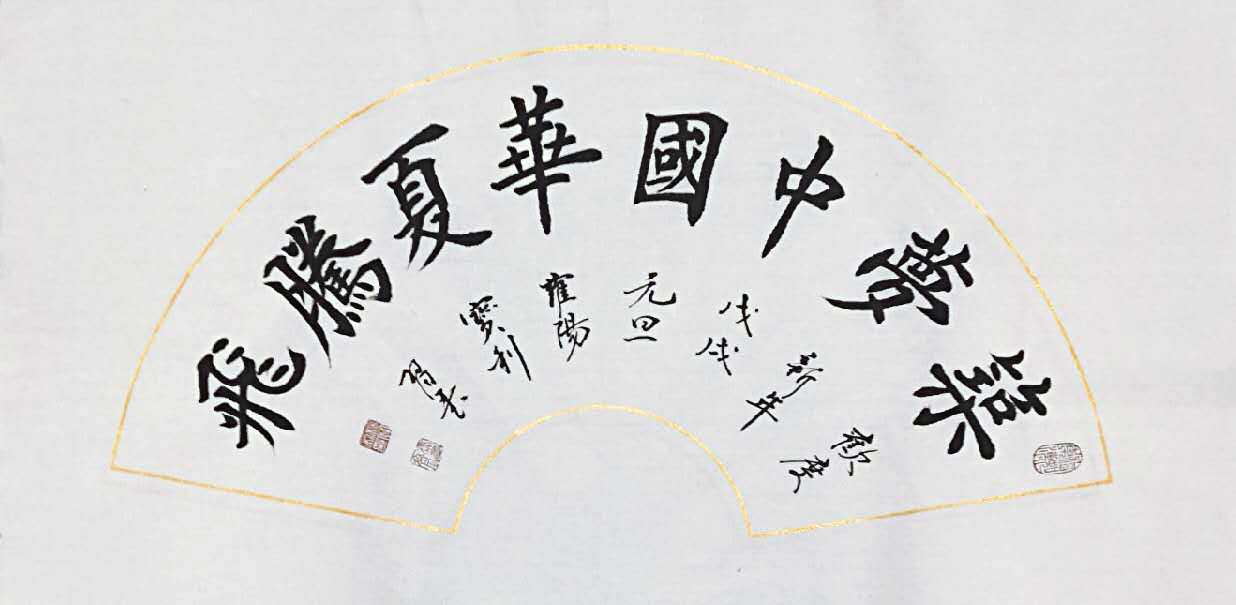 築夢中國華夏騰飛
歡度
新年
戊戌
元旦
雍陽
寶利
书